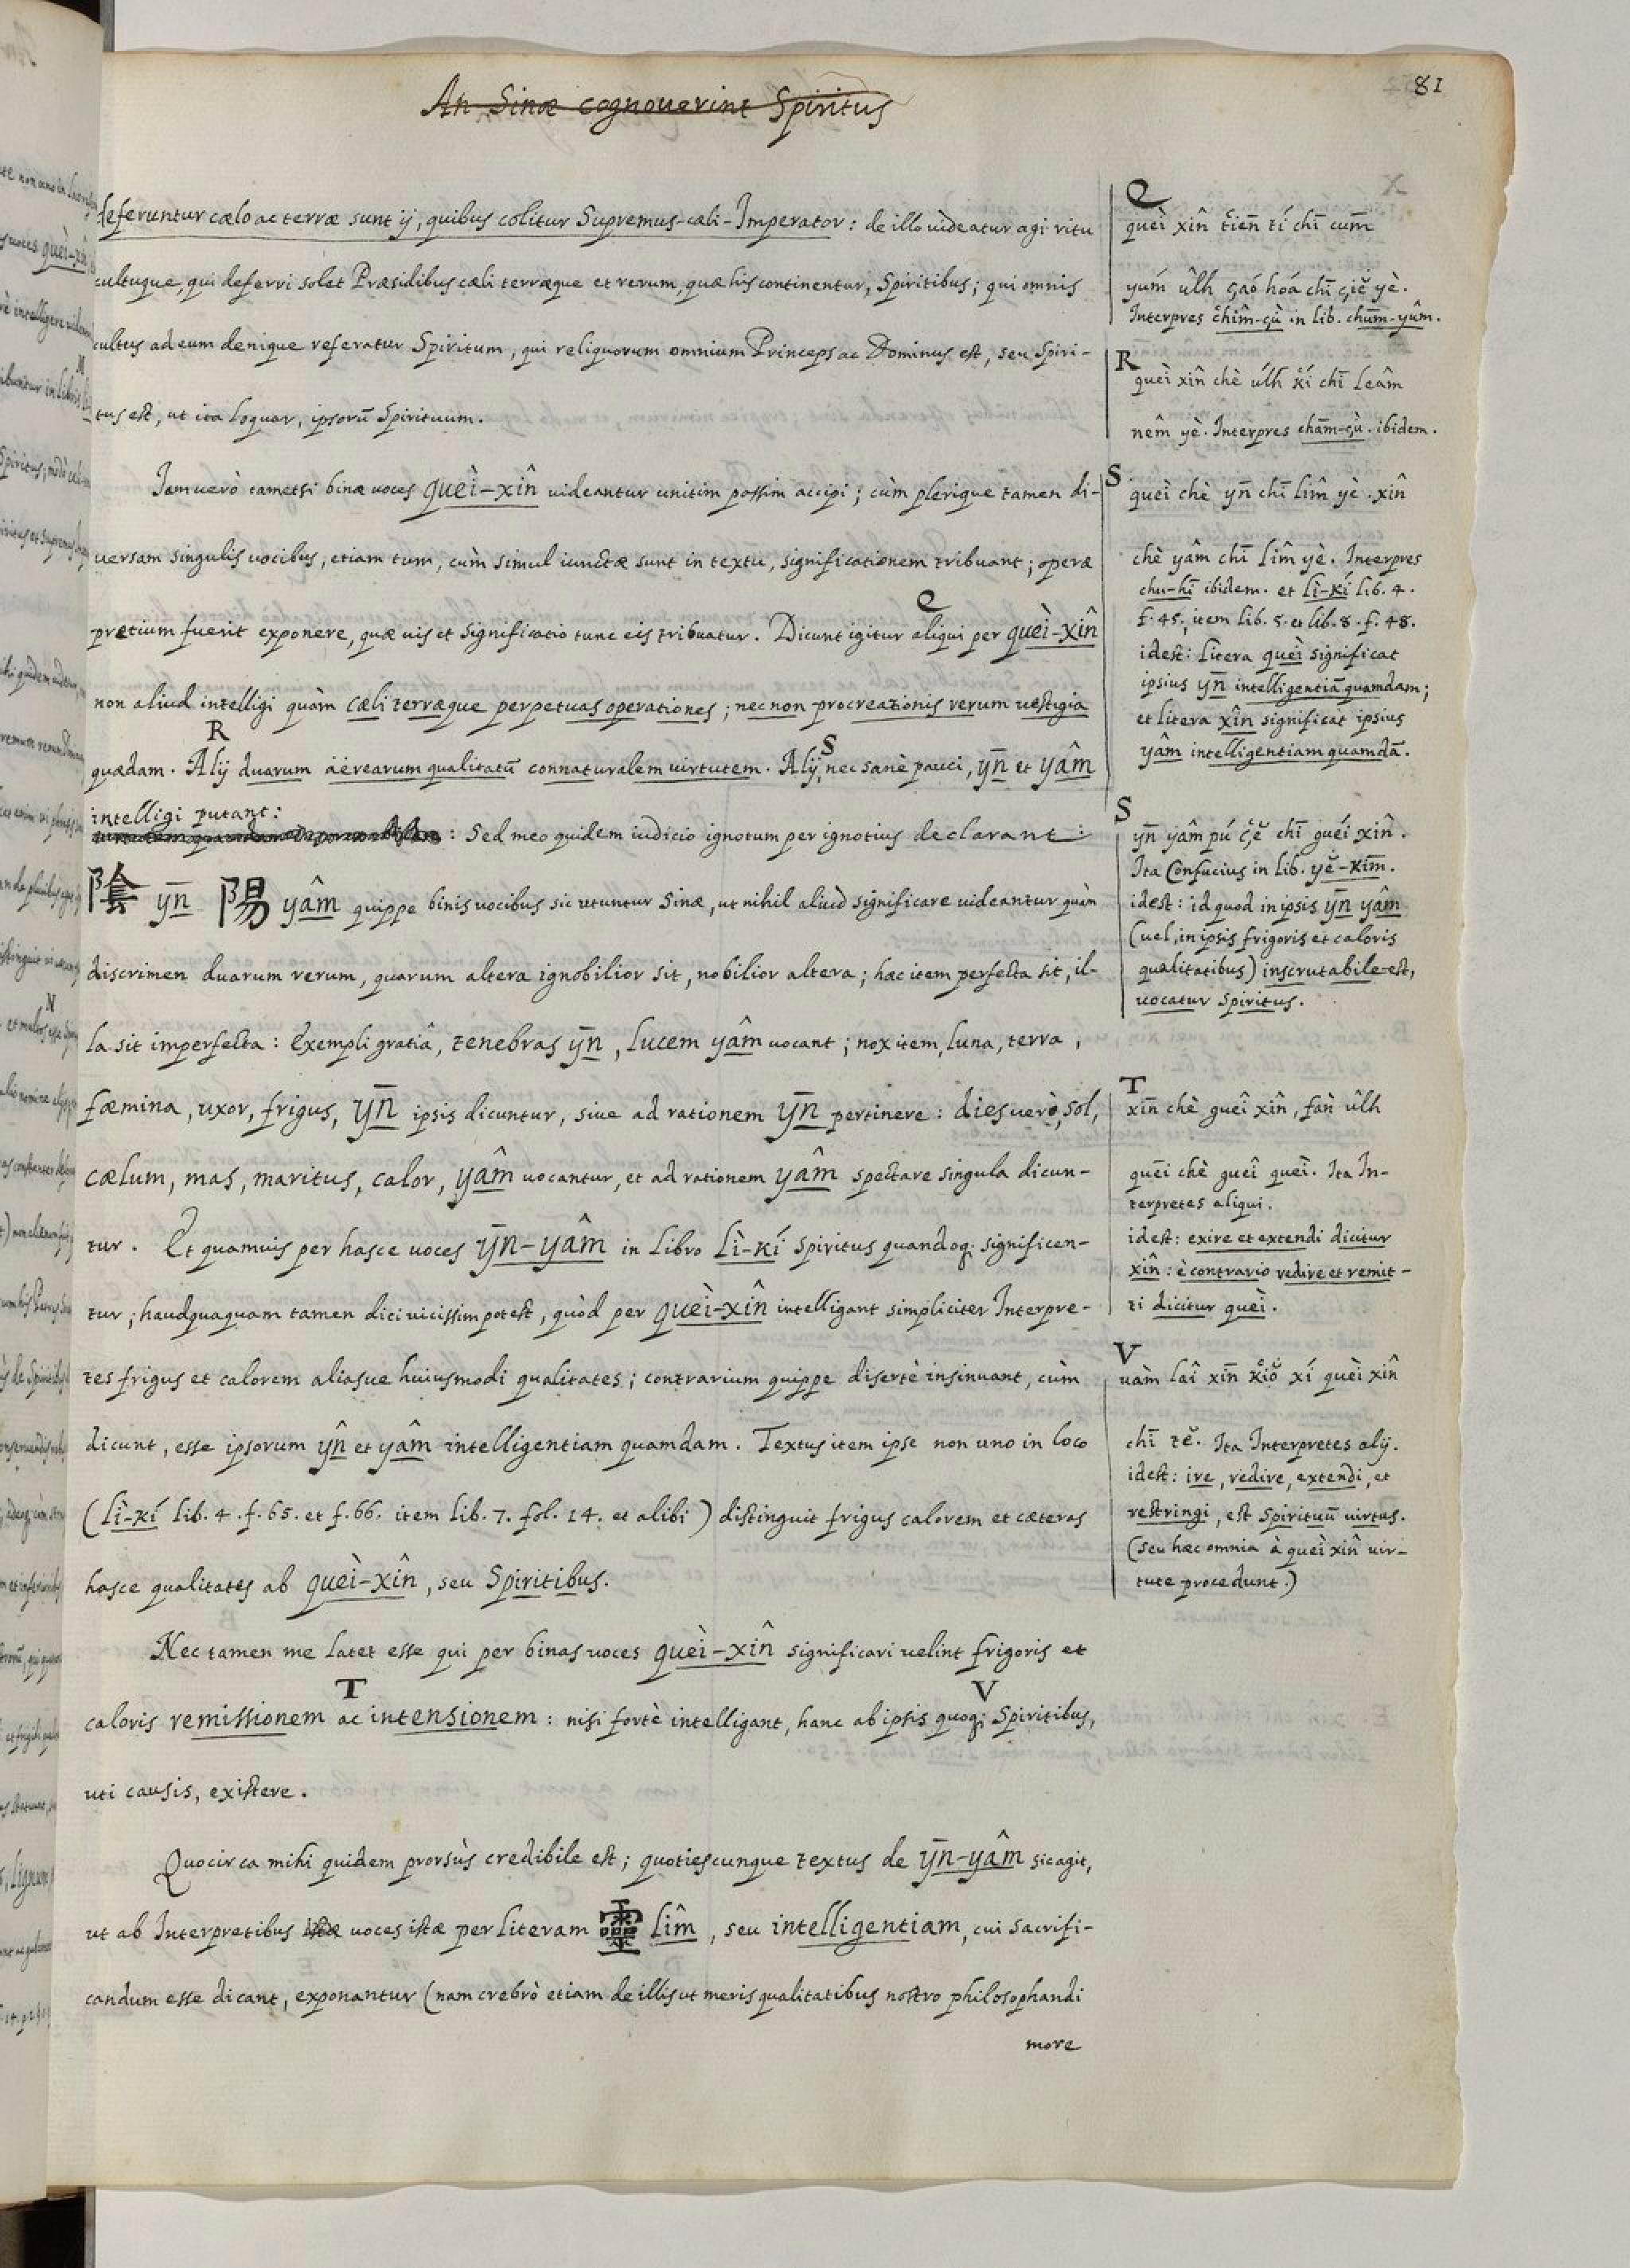 An Sinæ cognouerint Spiritus
81
deferuntur cælo ac terræ sunt ij, quibus colitur Supremus-cæli-Imperator: de illo uideatur agi ritu
cultuque, qui deferri solet Præsidibus cæli terræque et rerum, quæ his continentur, Spiritibus; qui omnis
cultus ad eum denique referatur Spiritum, qui reliquorum omnium Princeps ac Dominus est, seu Spiri-
tus est, ut ita loquar, ipsorū Spirituum.
Iam uerò tametsi binæ uoces quèi-xîn uideantur unitim possim accipi; cùm plerique tamen di-
uersam singulis uocibus, etiam tum, cùm simul iunctæ sunt in textu, significationem tribuant; operæ
Q
pretium fuerit exponere, quæ uis et significatio tunc eis tribuatur. Dicunt igitur aliqui per quèi-xîn
non aliud intelligi quàm cæli terræque perpetuas operationes; nec non procreationis rerum uestigia
R S
quædam. Alij duarum äerearum qualitatū connaturalem uirtutem. Alij, nec sanè pauci, yn̄ et yâm
intelligi putant:
: Sed meo quidem iudicio ignotum per ignotius declarant:
陰 yn̄ 陽 yâm quippe binis uocibus sic utuntur Sinæ, ut nihil aliud significare uideantur quàm
discrimen duarum rerum, quarum altera ignobilior sit, nobilior altera; hæc item perfecta sit, il-
la sit imperfecta: Exempli gratiâ, tenebras yn̄, lucem yâm uocant; nox item, luna, terra,
fæmina, uxor, frigus, yn̄ ipsis dicuntur, siue ad rationem yn̄ pertinere: dies uerò, sol,
cælum, mas, maritus, calor, yâm uocantur, et ad rationem yâm spectare singula dicun-
tur. Et quamuis per hasce uoces yn̄-yâm in Libro Lì-kí Spiritus quandoq; significen-
tur; haudquaquam tamen dici uicissim potest, quòd per quèi-xîn intelligant simpliciter Interpre-
tes frigus et calorem aliasue huiusmodi qualitates; contrarium quippe disertè insinuant, cùm
dicunt, esse ipsorum yn̂ et yâm intelligentiam quamdam. Textus item ipse non uno in loco
(Lì-kí lib. 4. f. 65. et f. 66. item lib. 7. fol. 14. et alibi) distinguit frigus calorem et cæteras
hasce qualitates ab quèi-xîn, seu Spiritibus.
Nec tamen me latet esse qui per binas uoces quèi-xîn significari uelint frigoris et
T V
caloris remissionem ac intensionem: nisi fortè intelligant, hanc ab ipsis quoq; Spiritibus,
uti causis, existere.
Quocirca mihi quidem prorsùs credibile est; quotiescunque textus de yn̄-yâm sic agit,
ut ab Interpretibus istæ uoces istæ per literam 靈 lîm, seu intelligentiam, cui sacrifi-
candum esse dicant, exponantur (nam crebrò etiam de illis ut meris qualitatibus nostro philosophandi
more
Q
quèi xîn t́ien̄ tí chī cum̄
yúm ûlh çaó hóá chī çiĕ yè.
Interpres chîm-çù in lib. chūm-yûm.
R
quèi xîn chè úlh kí chī leâm
nêm yè. Interpres chām-çù. ibidem.
S
quèi chè yn̄ chī lîm yè. xîn
chè yâm chī lîm yè. Interpres
chu-hī ibidem. et lì-kí lib. 4.
f. 45., item lib. 5. et lib. 8. f. 48.
idest: litera quèi significat
ipsius yn̄ intelligentiā quamdam;
et litera xîn significat ipsius
yâm intelligentiam quamdā.
S
yn̄ yâm pú çĕ chī guéi xîn.
Ita Confucius in lib. yĕ-kīm.
idest: id quod in ipsis yn̄ yâm
(uel, in ipsis frigoris et caloris
qualitatibus) inscrutabile est,
uocatur spiritus.
T
xīn chè gueî xîn, fàn ûlh
quēi chè gueî quèi. Ita In-
terpretes aliqui.
idest: exire et extendi dicitur
xîn: è contrario redire et remit-
ti dicitur quèi.
V
uàm laî xīn kiŏ xí quèi xîn
chī tĕ. Ita Interpretes alij.
idest: ire, redire, extendi, et
restringi, est Spirituū uirtus.
(seu hæc omnia à quèi xîn uir-
tute procedunt.)